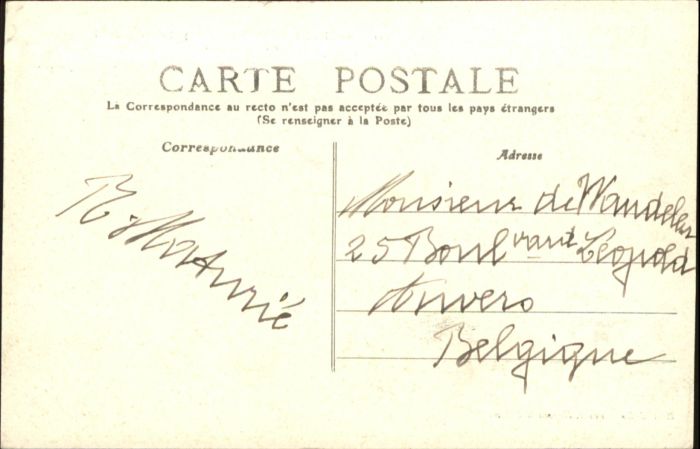 CARTE POSTALE
La Correspondance au recto n'est pas acceptée par tous les pays étrangers
(Se renseigner à la Poste)
Correspondance
Adresse
R. Maturié
Monsieur de
25 Boulvard Léopold
Anvers
Belgique